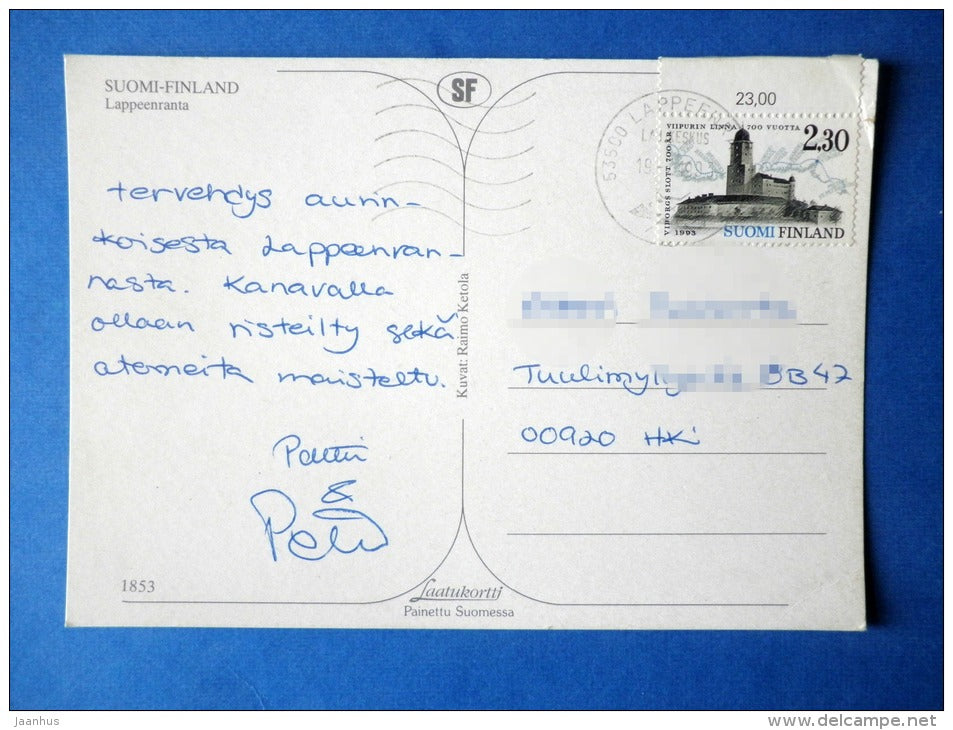 SUOMI-FINLAND
Lappeenranta
SF
23,00
53500 LAPPEEN
VIIPURIN LINNA 700 VUOTTA
VIBORGS SLOTT 700 ÅR
2,30
1993
SUOMI FINLAND
tervehdys aurin-
koisesta Lappeenran-
nasta. Kanavalla
ollaan risteilty sekä
aterioita maisteltu.
&
Kuvat: Raimo Ketola
BB47
00920 HKi
1853
Laatukortti
Painettu Suomessa
Jaanhus
www.delcampe.net